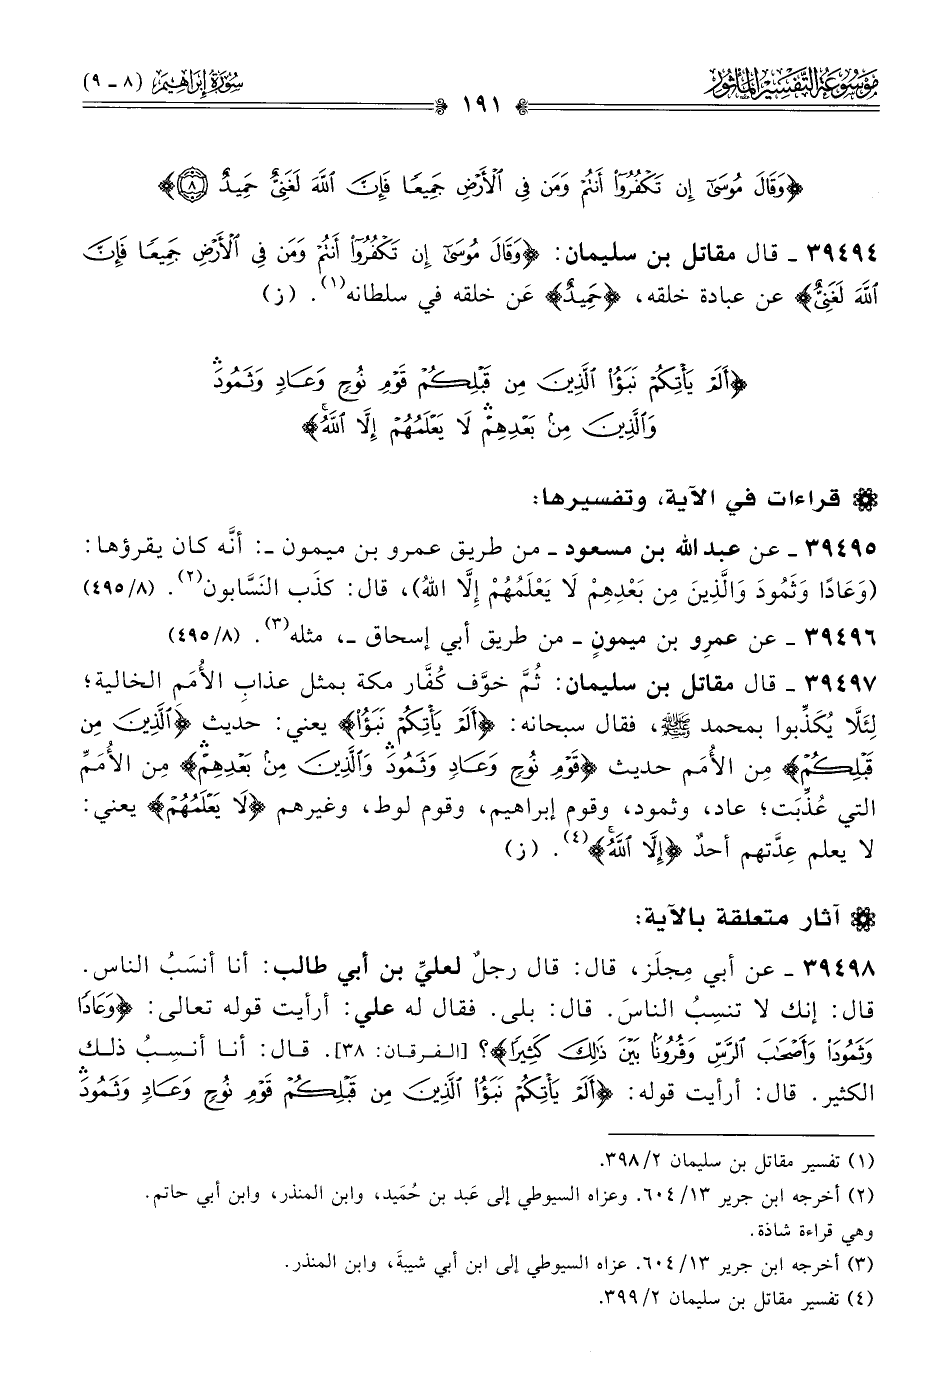 موسوعة التفسير المأثور
سورة إبراهيم (٨ - ٩)
١٩١
﴿وَقَالَ مُوسَىٰٓ إِن تَكْفُرُوٓا۟ أَنتُمْ وَمَن فِى ٱلْأَرْضِ جَمِيعًا فَإِنَّ ٱللَّهَ لَغَنِىٌّ حَمِيدٌ ﴿٨﴾﴾
٣٩٤٩٤ ـ قال مقاتل بن سليمان: ﴿وَقَالَ مُوسَىٰٓ إِن تَكْفُرُوٓا۟ أَنتُمْ وَمَن فِى ٱلْأَرْضِ جَمِيعًا فَإِنَّ
ٱللَّهَ لَغَنِىٌّ﴾ عن عبادة خلقه، ﴿حَمِيدٌ﴾ عَن خلقه في سلطانه(١). (ز)
﴿أَلَمْ يَأْتِكُمْ نَبَؤُا۟ ٱلَّذِينَ مِن قَبْلِكُمْ قَوْمِ نُوحٍ وَعَادٍ وَثَمُودَ ۛ
وَٱلَّذِينَ مِنۢ بَعْدِهِمْ ۛ لَا يَعْلَمُهُمْ إِلَّا ٱللَّهُ ۚ﴾
قراءات في الآية، وتفسيرها:
٣٩٤٩٥ ـ عن عبد الله بن مسعود ـ من طريق عمرو بن ميمون ـ: أنَّه كان يقرؤها:
(وَعَادًا وَثَمُودَ وَالَّذِينَ مِن بَعْدِهِمْ لَا يَعْلَمُهُمْ إِلَّا اللهُ)، قال: كذَب النَسَّابون(٢). (٨/ ٤٩٥)
٣٩٤٩٦ ـ عن عمرِو بن ميمونٍ ـ من طريق أبي إسحاق ـ، مثله(٣). (٨/ ٤٩٥)
٣٩٤٩٧ ـ قال مقاتل بن سليمان: ثُمَّ خوَّف كُفَّار مكة بمثل عذابِ الأُمَم الخالية؛
لِئَلَّا يُكَذِّبوا بمحمد ﷺ، فقال سبحانه: ﴿أَلَمْ يَأْتِكُمْ نَبَؤُا۟﴾ يعني: حديث ﴿ٱلَّذِينَ مِن
قَبْلِكُمْ﴾ مِن الأُمَم حديث ﴿قَوْمِ نُوحٍ وَعَادٍ وَثَمُودَ ۛ وَٱلَّذِينَ مِنۢ بَعْدِهِمْ ۛ﴾ مِن الأُمَمِّ
التي عُذِّبَت؛ عاد، وثمود، وقوم إبراهيم، وقوم لوط، وغيرهم ﴿لَا يَعْلَمُهُمْ﴾ يعني:
لا يعلم عِدَّتهم أحدٌ ﴿إِلَّا ٱللَّهُ ۚ﴾(٤). (ز)
آثار متعلقة بالآية:
٣٩٤٩٨ ـ عن أبي مِجلَز، قال: قال رجلٌ لعليِّ بن أبي طالب: أنا أنسَبُ الناس.
قال: إنك لا تنسِبُ الناسَ. قال: بلى. فقال له علي: أرأيت قوله تعالى: ﴿وَعَادًا
وَثَمُودَا۟ وَأَصْحَـٰبَ ٱلرَّسِّ وَقُرُونًۢا بَيْنَ ذَٰلِكَ كَثِيرًا﴾؟ [الفرقان: ٣٨]. قال: أنا أنسِبُ ذلك
الكثير. قال: أرأيت قوله: ﴿أَلَمْ يَأْتِكُمْ نَبَؤُا۟ ٱلَّذِينَ مِن قَبْلِكُمْ قَوْمِ نُوحٍ وَعَادٍ وَثَمُودَ ۛ
(١) تفسير مقاتل بن سليمان ٢/ ٣٩٨.
(٢) أخرجه ابن جرير ١٣/ ٦٠٤. وعزاه السيوطي إلى عَبد بن حُمَيد، وابن المنذر، وابن أبي حاتم.
وهي قراءة شاذة.
(٣) أخرجه ابن جرير ١٣/ ٦٠٤. عزاه السيوطي إلى ابن أبي شيبةَ، وابن المنذر.
(٤) تفسير مقاتل بن سليمان ٢/ ٣٩٩.